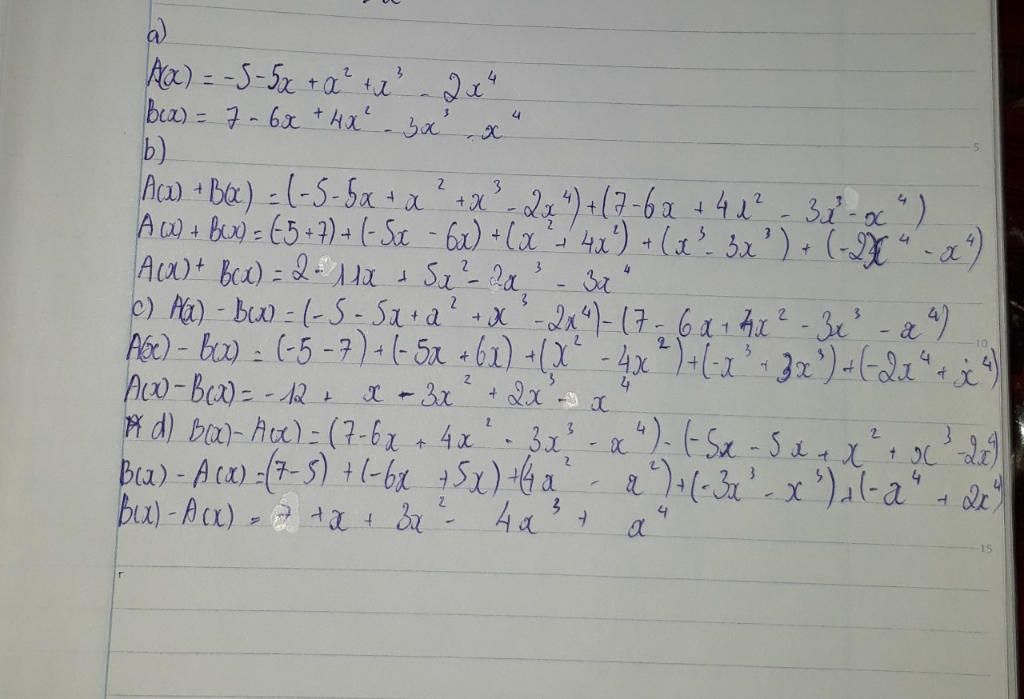 a)
A(x) = -5-5x + x² + x³ - 2x⁴
B(x) = 7 - 6x + 4x² - 3x³ - x⁴
b)
A(x) + B(x) = (-5-5x + x² + x³ - 2x⁴) + (7-6x + 4x² - 3x³ - x⁴)
A(x) + B(x) = (-5+7) + (-5x - 6x) + (x² + 4x²) + (x³ - 3x³) + (-2x⁴ - x⁴)
A(x) + B(x) = 2 - 11x + 5x² - 2x³ - 3x⁴
c) A(x) - B(x) = (-5 - 5x + x² + x³ - 2x⁴) - (7 - 6x + 4x² - 3x³ - x⁴)
A(x) - B(x) = (-5 - 7) + (-5x + 6x) + (x² - 4x²) + (-x³ + 3x³) + (-2x⁴ + x⁴)
A(x) - B(x) = -12 + x - 3x² + 2x³ - x⁴
d) B(x) - A(x) = (7-6x + 4x² - 3x³ - x⁴) - (-5x - 5x + x² + x³ - 2x⁴)
B(x) - A(x) = (7-5) + (-6x + 5x) + (4x² - x²) + (-3x³ - x³) + (-x⁴ + 2x⁴
B(x) - A(x) = + x + 3x² - 4x³ + x⁴
5
10
15